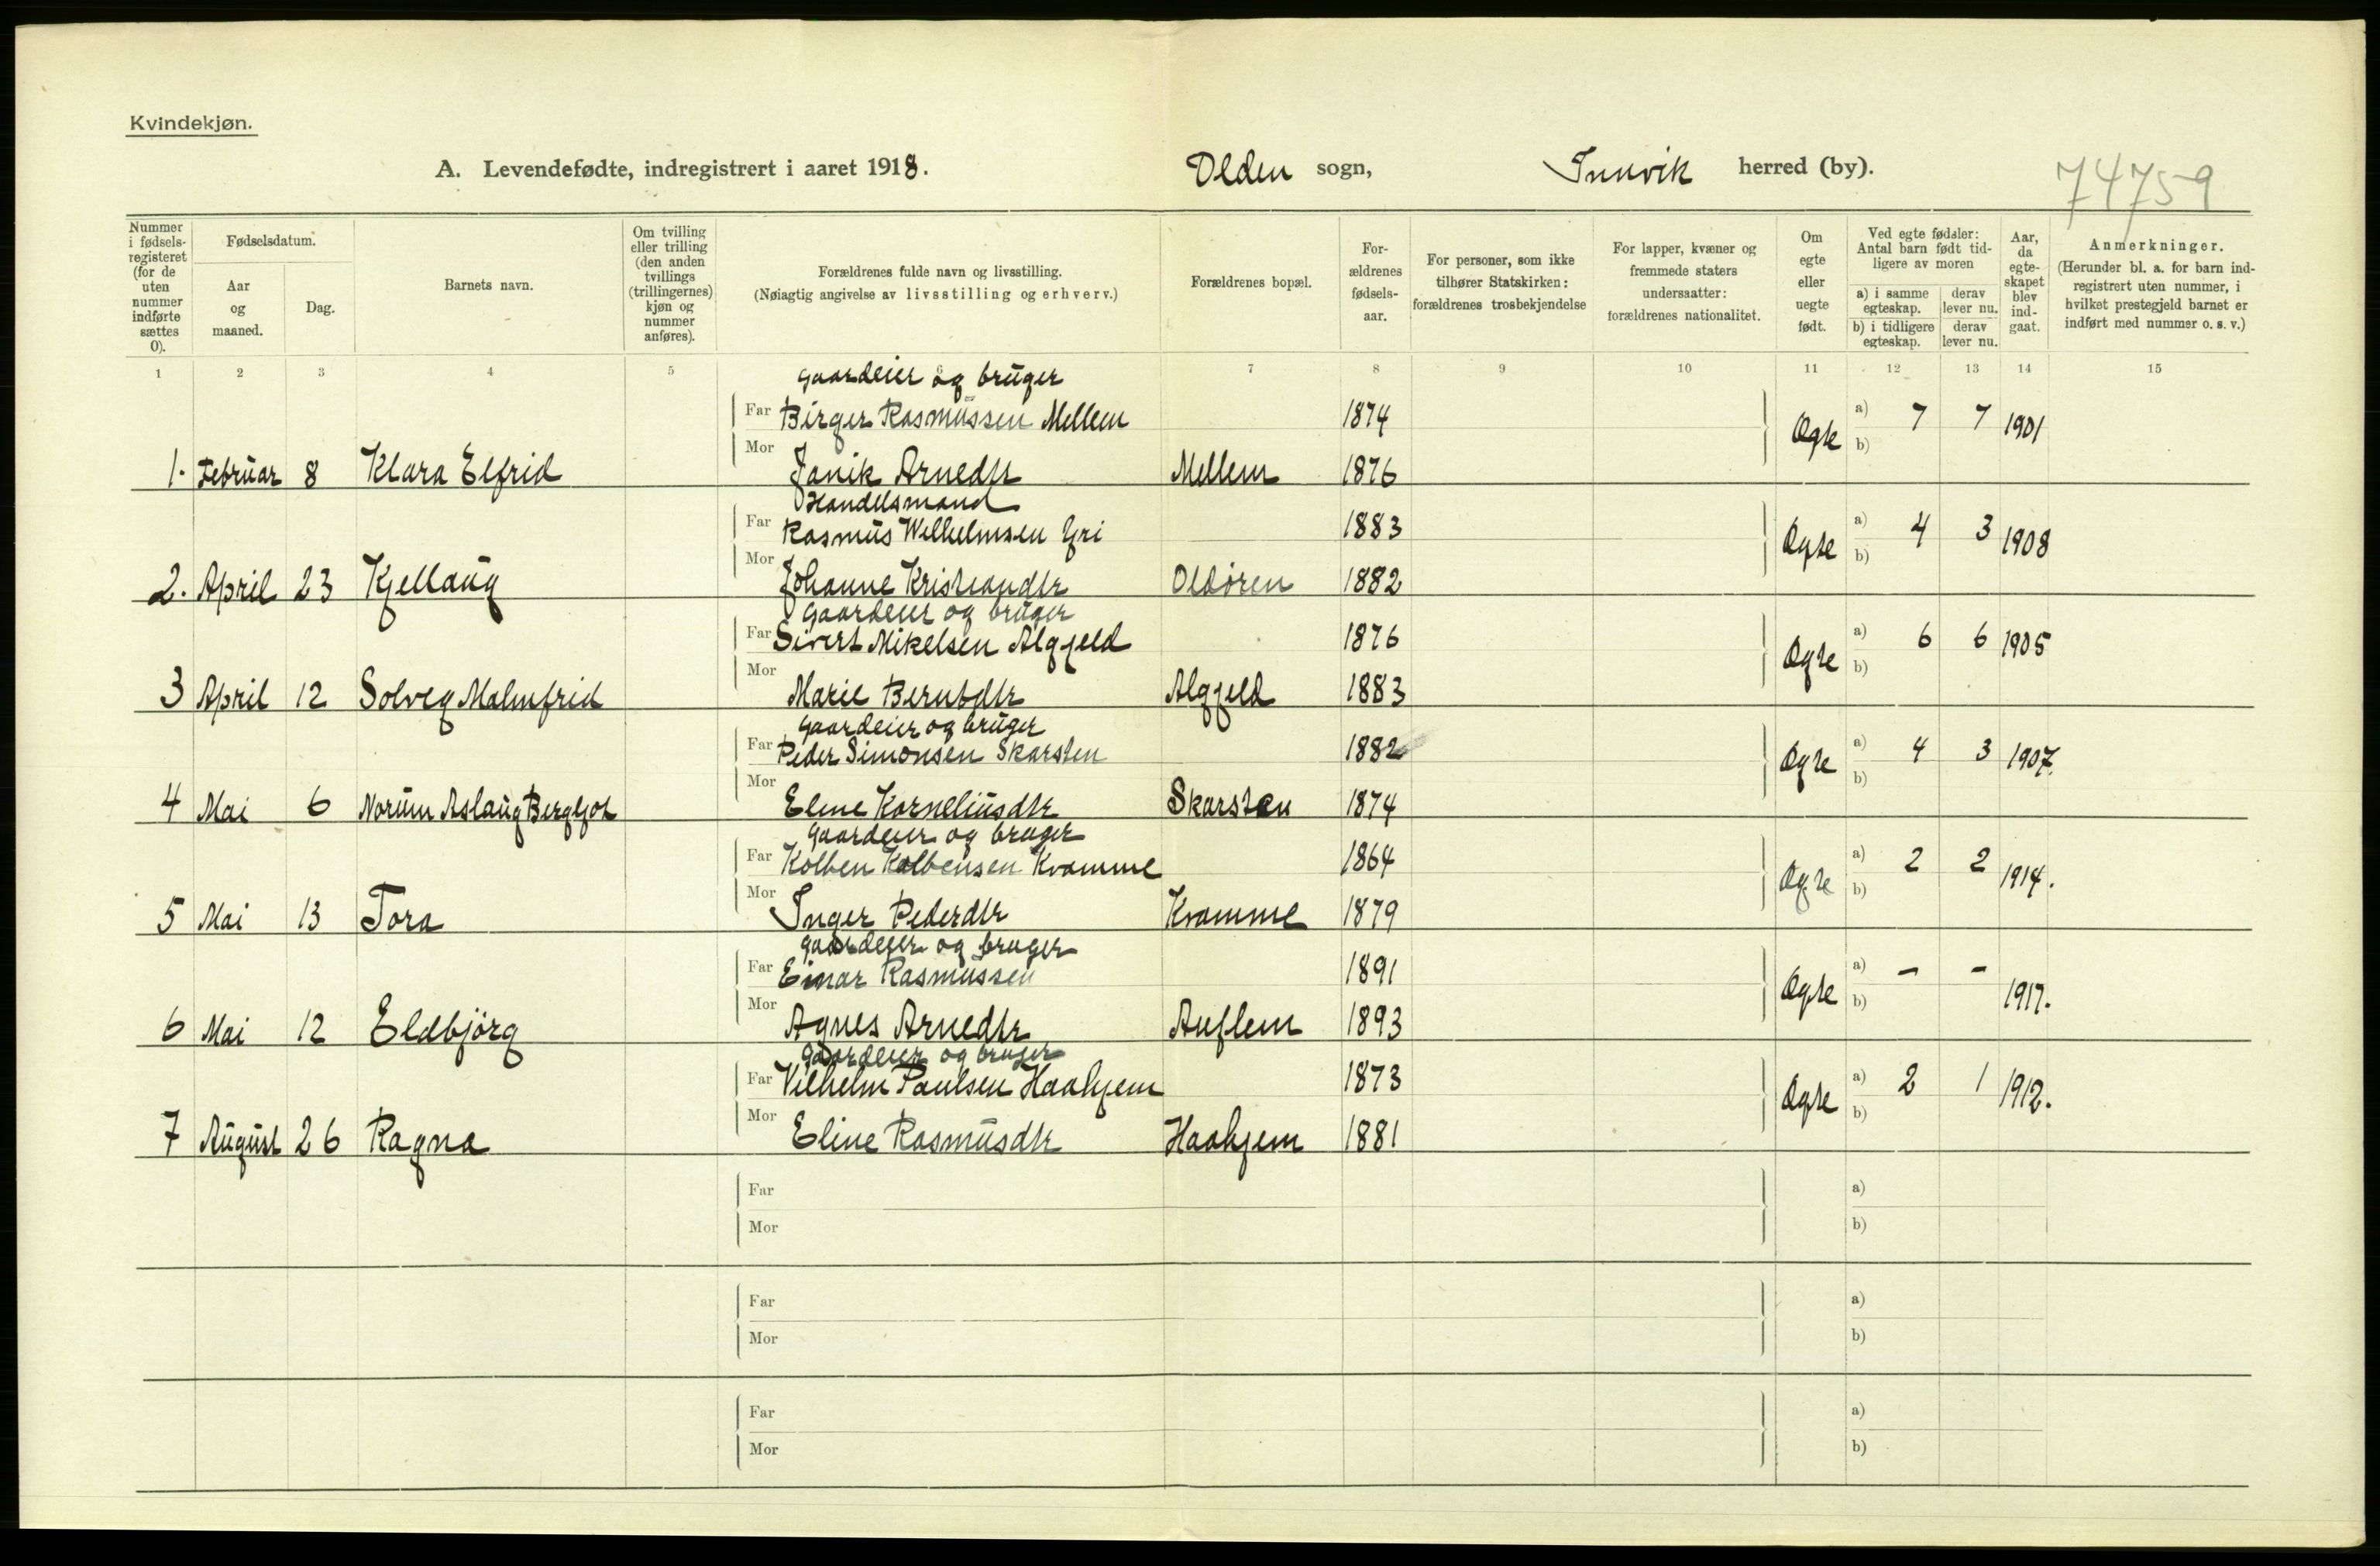 Kvindekjøn.
A. Levendefødte, indregistrert i aaret 1918. Olden sogn, Innvik herred (by). 74759
Nummer i fødselsregisteret (for de uten nummer indførte sættes 0).
Fødselsdatum.
Aar og maaned.
Dag.
Barnets navn.
Om tvilling eller trilling (den anden tvillings (trillingernes) kjøn og nummer anføres).
Forældrenes fulde navn og livsstilling.
(Nøiagtig angivelse av livsstilling og erhverv.)
Forældrenes bopæl.
Forældrenes fødselsaar.
For personer, som ikke tilhører Statskirken: forældrenes trosbekjendelse
For lapper, kvæner og fremmede staters undersaatter: forældrenes nationalitet.
Om egte eller uegte født.
Ved egte fødsler: Antal barn født tidligere av moren
a) i samme egteskap. derav lever nu.
b) i tidligere egteskap. derav lever nu.
Aar, da egteskapet blev indgaat.
Anmerkninger.
(Herunder bl. a. for barn indregistrert uten nummer, i hvilket prestegjeld barnet er indført med nummer o. s. v.)
1 2 3 4 5 6 7 8 9 10 11 12 13 14 15
Gaardeier og bruger
Far Birger Rasmussen Mellem 1874 Ægte a) 7 7 1901
1. Februar 8 Klara Elfrid Mor Janik Arnedtr Mellem 1876 b)
Handelsmand
Far Rasmus Wilhelmsen Yri 1883 Ægte a) 4 3 1908
2. April 23 Kjellaug Mor Johanne Kristiandtr Oldøren 1882 b)
Gaardeier og bruger
Far Sivert Mikelsen Algjeld 1876 Ægte a) 6 6 1905
3 April 12 Solveg Malmfrid Mor Marie Berntdtr Algjeld 1883 b)
Gaardeier og bruger
Far Peder Simonsen Skarsten 1882 Ægte a) 4 3 1907.
4 Mai 6 Norum Aslaug Bergljot Mor Eline Korneliusdtr Skarsten 1874 b)
Gaardeier og bruger
Far Kolben Kolbensen Kvamme 1864 Ægte a) 2 2 1914.
5 Mai 13 Tora Mor Inger Pederdtr Kvamme 1879 b)
Gaardeier og bruger
Far Einar Rasmussen 1891 Ægte a) - - 1917.
6 Mai 12 Eldbjörg Mor Agnes Arnedtr Auflem 1893 b)
Gaardeier og bruger
Far Vilhelm Paulsen Haahjem 1873 Ægte a) 2 1 1912.
7 August 26 Ragna Mor Eline Rasmusdtr Haahjem 1881 b)
Far a)
Mor b)
Far a)
Mor b)
Far a)
Mor b)